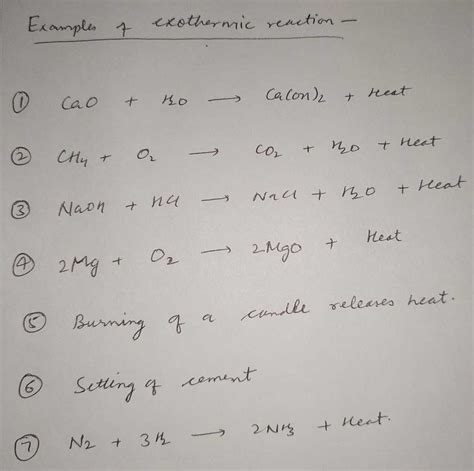 Examples of exothermic reaction —
① CaO + H₂O → Ca(OH)₂ + Heat
② CH₄ + O₂ → CO₂ + H₂O + Heat
③ NaOH + HCl → NaCl + H₂O + Heat
④ 2Mg + O₂ → 2MgO + Heat
⑤ Burning of a candle releases heat.
⑥ Setting of cement
⑦ N₂ + 3H₂ → 2NH₃ + Heat.